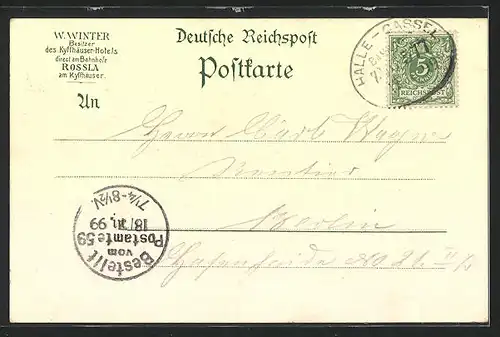 W. WINTER
Besitzer
des Kyffhäuser-Hotels
direct am Bahnhofe
ROSSLA
am Kyffhäuser.
Deutsche Reichspost
Postkarte
An
HALLE - CASSEL
5
REICHSPOST
Herrn Carl Wagner
Rentier
Berlin
Hasenheide No
Bestellt
vom
Postamte 59
18/ 99
7¼-8½V.